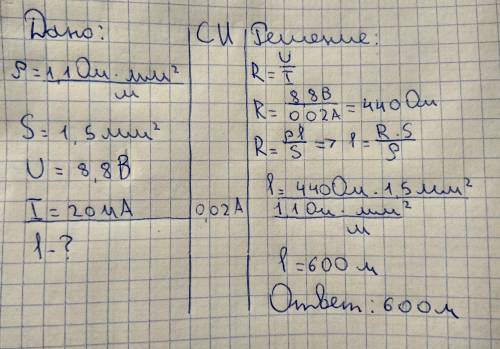 Дано:
ρ = 1,1 Ом · мм²
м
S = 1,5 мм²
U = 8,8 В
I = 20 мА
l - ?
СИ
0,02 А
Решение:
R = U/I
R = 8,8 В / 0,02 А = 440 Ом
R = ρl/S => l = R · S / ρ
l = 440 Ом · 1,5 мм²
1,1 Ом · мм²
м
l = 600 м
Ответ: 600 м